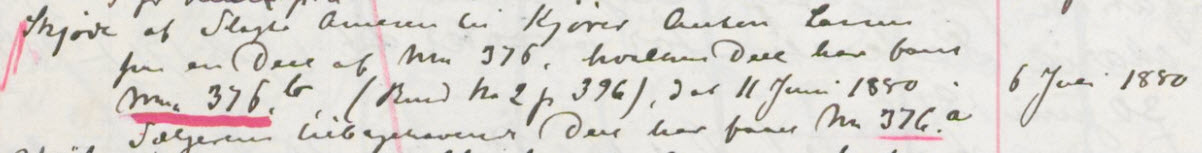 Skjøde af Slagter Amesen til Kjører Anton Larsen
paa en Deel af No 376, hvilken Deel har faaet
No 376.b, (Bind No 2 p 396), dat 11 Juni 1880. 6 Juli 1880
Sælgerens tilbageværende Deel har faaet No 376.a